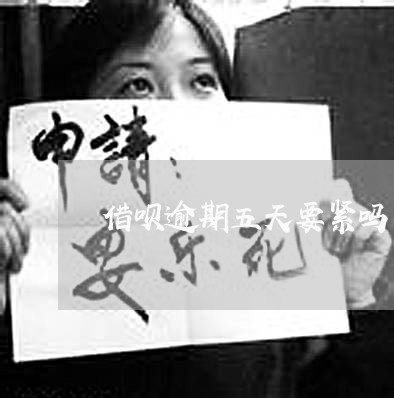 申請：
借呗逾期五天要紧吗
安乐死